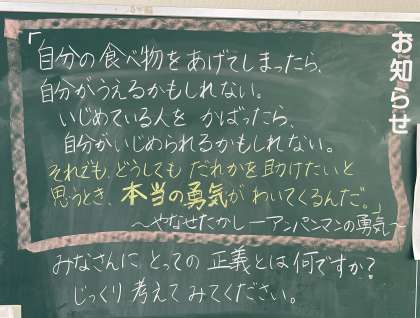 お知らせ
「自分の食べ物をあげてしまったら、
自分がうえるかもしれない。
いじめている人を かばったら、
自分がいじめられるかもしれない。
それでも、どうしても だれかを助けたいと
思うとき、本当の勇気が わいてくるんだ。」
～やなせたかし ー アンパンマンの勇気～
みなさんに とっての 正義とは 何ですか?
じっくり 考えて みてください。